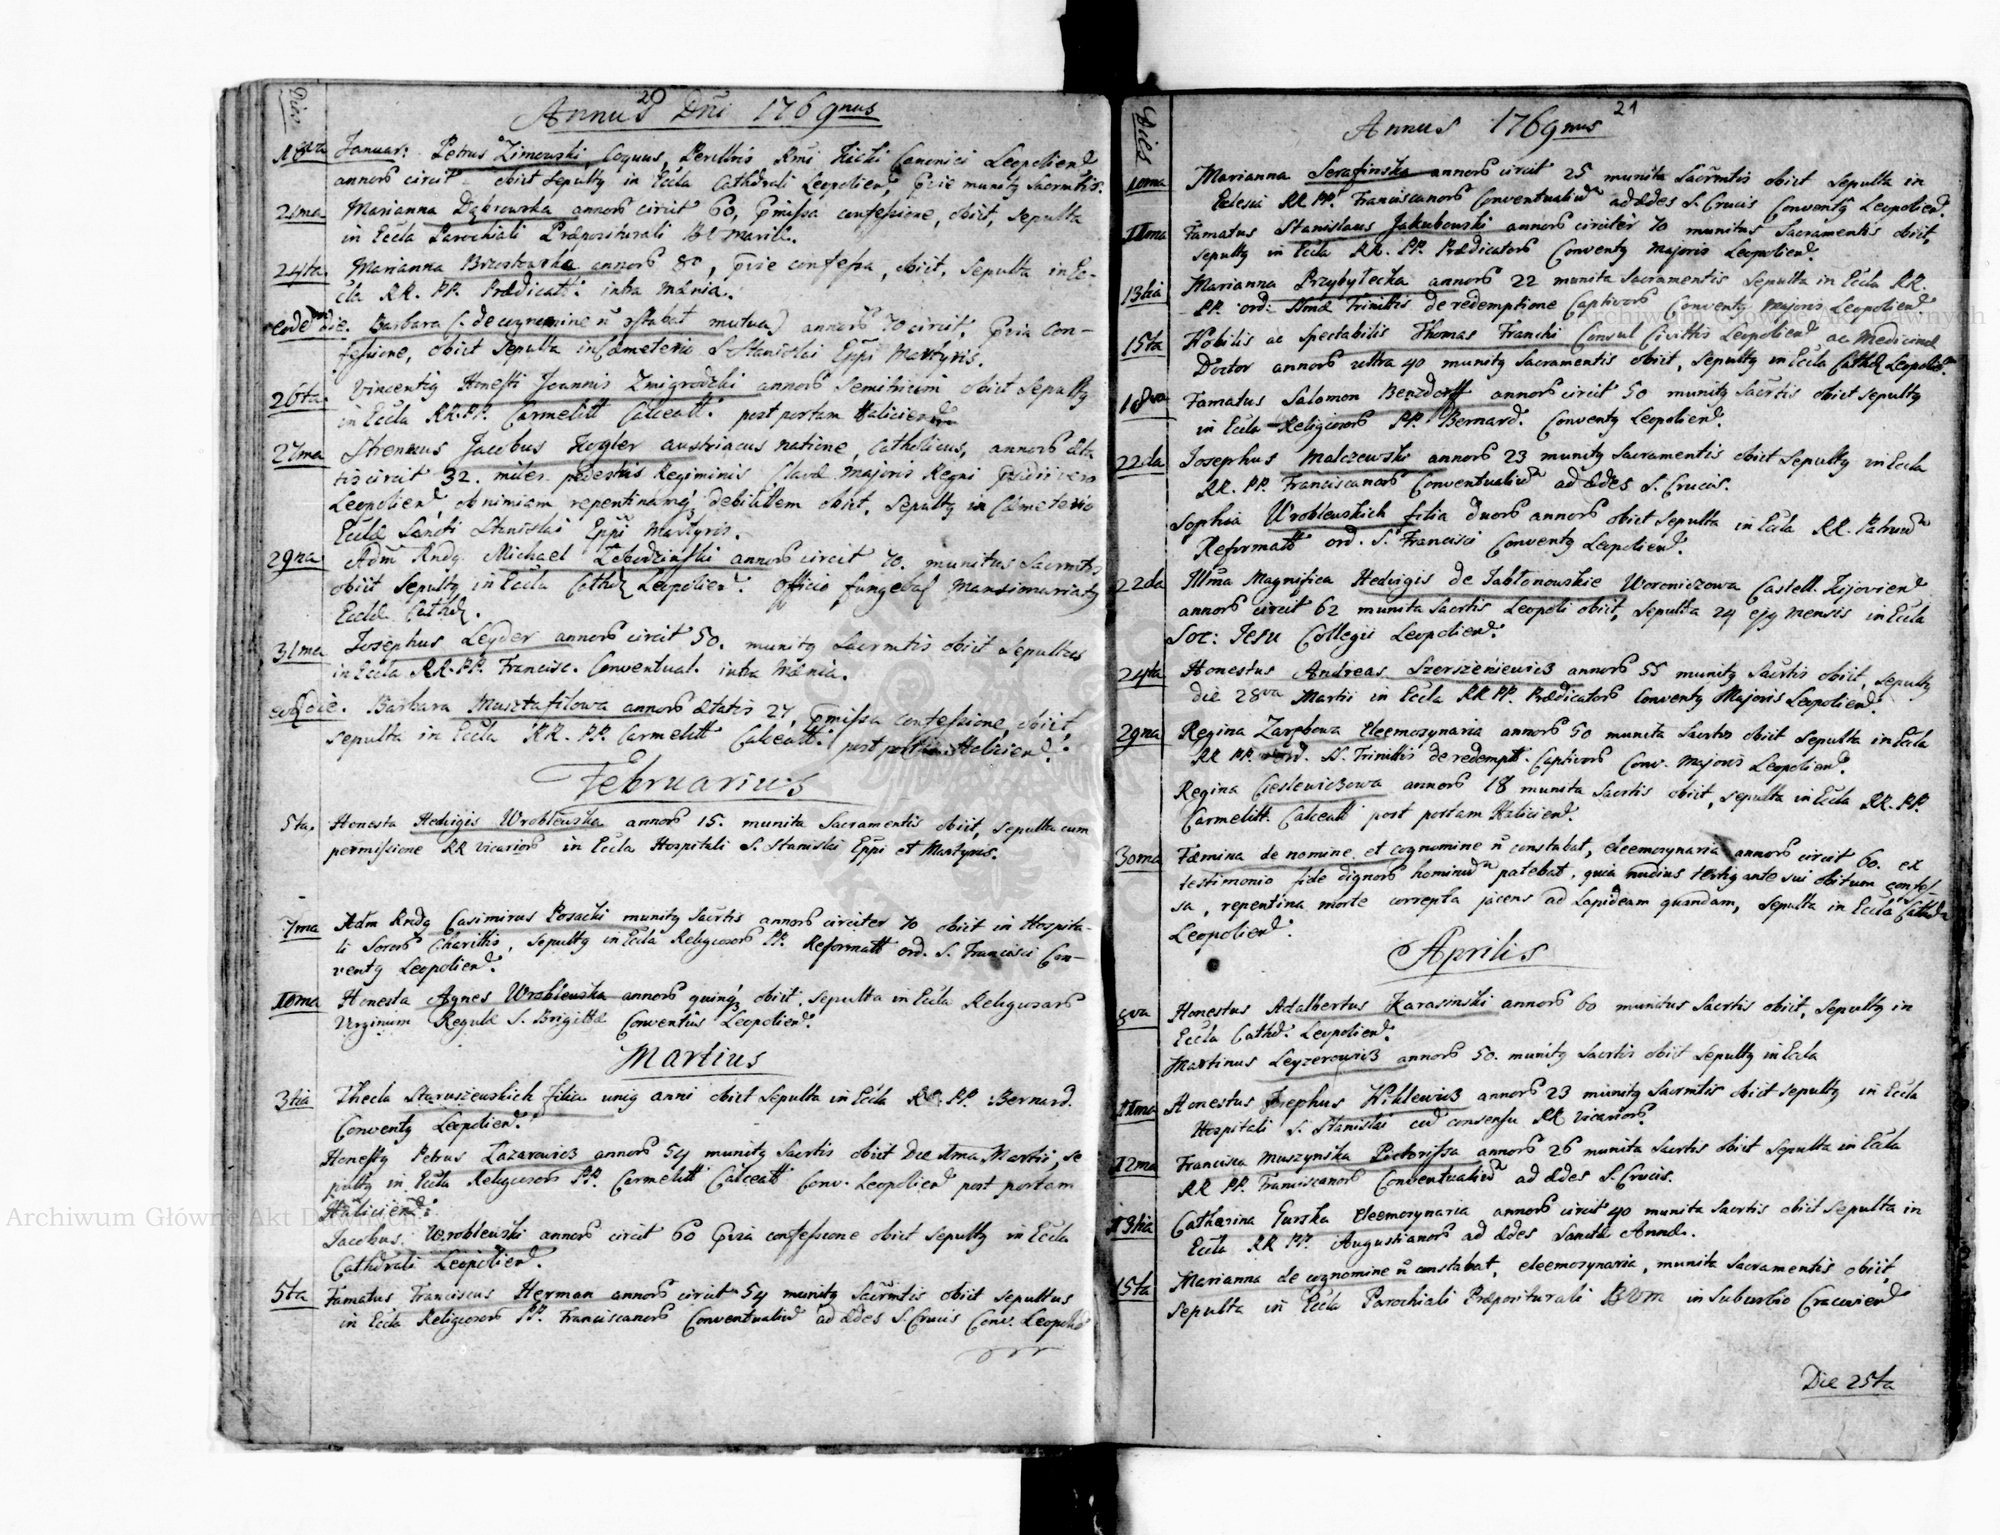 Dies
20
Annus Dñi 1769nus
Januar: Petrus Zimowski, Coquus, Perillris Rmi Kicki Canonici Leopolien
annorũ circit obiit sepultg in Eccla Cathdrali Leopolien, pvie munitg Sacrmtis.
21ma Marianna Dąbrowska annorũ circit 60, pmissa confessione, obiit, sepulta
in Eccla Parochiali Præpositurali BV Mariæ.
24ta Marianna Brzostowska annorũ 80, pvie confessa, obiit, sepulta in Ec-
cla RR. PP. Prædicatt: intra Mænia.
eode die. Barbara (: de cognomine ñ cstabat mutua) annorũ 70 circit, pvia Con-
fessione, obiit sepulta in Cæmeterio S. Stanislai Eppi Martyris.
26ta. Vincentig Honesti Joannis Zmigrodzki annorũ semitrium obiit sepultg
in Eccla RR. PP. Carmelitt Calceatt: post portam Halicien
27ma Strenuus Jacobus Kogler austriacus natione, Catholicus, annorũ æta
tis circit 32. miles pedestris Regiminis Clavæ Majoris Regni Præsidii vero
Leopolien, ob nimiam repentinamq debilittem obiit, sepultg in Cæmeterio
Ecclæ Sancti Stanislai Eppi Martyris.
29na Adm Rndg Michael Łebodzinski annorũ circit 70. munitus Sacrmtis
obiit sepultg in Eccla Cathd Leopolien. Officio fungebat Mansionariatg
Ecclæ Cathd.
31ma Josephus Leyder annorũ circit 50. munitg Sacrmtis obiit sepultus
in Eccla RR. PP. Francisc. Conventual. intra Mænia.
eod die. Barbara Musztafilowa annorũ ætatis 27, pmissa confessione, obiit,
sepulta in Eccla RR. PP. Carmelitt Calceatt: post portam Halicien:
Februarius
5ta. Honesta Hedvigis Wroblewska annorũ 15. munita Sacramentis obiit, sepulta cum
permissione RR Vicariorũ in Eccla Hospitali S. Stanislai Eppi et Martyris.
7ma Adm Rndg Casimirus Posacki munitg Sacrtis annorũ circiter 70 obiit in Hospita-
li Sororũ Charittis, sepultg in Eccla Religiosorũ PP. Reformatt ord. S. Francisci Con-
ventg Leopolien.
10ma Honesta Agnes Wroblewska annorũ quinq, obiit, sepulta in Eccla Religiosarũ
Virginum Regulæ S. Brigittæ Conventûs Leopolien.
Martius
3tia Thecla Staruszewskich filia unig anni obiit sepulta in Eccla RR. PP. Bernard.
Conventg Leopolien.
Honestg Petrus Łazarowicz annorũ 54 munitg Sacrtis obiit Die 1ma Martii, se
pultg in Eccla Religiosorũ PP. Carmelitt Calceatt Conv. Leopolien post portam
Halicien:
Jacobus Wroblewski annorũ circit 60 pvia confessione obiit sepultg in Eccla
Cathdrali Leopolien.
5ta Famatus Franciscus Herman annorũ circit 54 munitg Sacrmtis obiit sepultus
in Eccla Religiosorũ PP. Franciscanorũ Conventualiũ ad Ædes S. Crucis Conv. Leopolien
Dies
21
Annus 1769nus
10ma Marianna Serafinska annorũ circit 25 munita Sacrmtis obiit sepulta in
Eclesia RR PP. Franciscanorũ Conventualiũ ad Ædes S. Crucis Conventg Leopolien.
11ma Famatus Stanislaus Jakubowski annorũ circiter 70 munitus Sacramentis obiit,
sepultg in Eccla RR. PP. Prædicatorũ Conventg Majoris Leopolien.
13tia Marianna Przybytecka annorũ 22 munita Sacramentis sepulta in Eccla RR.
PP. ord: SSmæ Trinittis de redemptione Captivorũ Conventg Majoris Leopolien.
15ta Nobilis ac Spectabilis Thomas Franchi Consul Civittis Leopolien ac Medicinæ
Doctor annorũ ultra 40 munitg Sacramentis obiit, sepultg in Eccla Cathd Leopolien.
18va Famatus Salomon Benzdorff annorũ circit 50 munitg Sacrtis obiit sepultg
in Eccla Religiosorũ PP. Bernard. Conventg Leopolien.
22da Josephus Malczewski annorũ 23 munitg Sacramentis obiit sepultg in Eccla
RR. PP. Franciscanorũ Conventualiũ ad Ædes S. Crucis.
Sophia Wroblewskich filia duorũ annorũ obiit sepulta in Eccla RR. Patrum
Reformatt ord. S. Francisci Conventg Leopolien.
22da Illma Magnifica Hedvigis de Jabłonowskie Woroniczowa Castell. Kijovien
annorũ circit 62 munita Sacrtis Leopoli obiit, sepulta 24 ejg mensis in Eccla
Soc: Jesu Collegii Leopolien.
24ta Honestus Andreas Szerszeniewicz annorũ 55 munitg Sacrtis obiit, sepultg
die 28va Martii in Eccla RR PP. Prædicatorũ Conventg Majoris Leopolien.
29na Regina Zarębowa eleemosynaria annorũ 50 munita Sacrtis obiit sepulta in Eccla
RR PP. ord. SS. Trinittis de redempt. Captivorũ Conv. Majoris Leopolien.
Regina Cieslewiczowa annorũ 18 munita Sacrtis obiit, sepulta in Eccla RR. PP.
Carmelitt. Calceatt post portam Halicien.
30ma Fæmina de nomine et cognomine ñ constabat, eleemosynaria annorũ circit 60. ex
testimonio fide dignorũ hominũ patebat, quia nudius tertig ante sui obitum confes-
sa, repentina morte correpta jacens ad lapideam quandam, sepulta in Eccla Cathdr
Leopolien.
Aprilis
8va Honestus Adalbertus Karasinski annorũ 60 munitus Sacrtis obiit, sepultg in
Eccla Cathd. Leopolien.
Martinus Leyzerowicz annorũ 50. munitg Sacrtis obiit sepultg in Eccla
11ma Honestus Josephus Wiklewicz annorũ 23 munitg Sacrmtis obiit sepultg in Eccla
Hospitali S. Stanislai cũ consensu RR Vicariorũ.
12ma Francisca Muszynska Pictorissa annorũ 26 munita Sacrtis obiit sepulta in Eccla
RR PP. Franciscanorũ Conventualiũ ad Ædes S. Crucis.
13tia Catharina Gurska eleemosynaria annorũ circit 40 munita Sacrtis obiit sepulta in
Eccla RR PP. Augustianorũ ad Ædes Sanctæ Annæ.
15ta Marianna de cognomine ñ constabat, eleemosynaria, munita Sacramentis obiit,
sepulta in Eccla Parochiali Præpositurali BVM in Suburbio Cracovien
Die 25ta
Archiwum Główne Akt Dawnych
Archiwum Główne Akt Dawnych